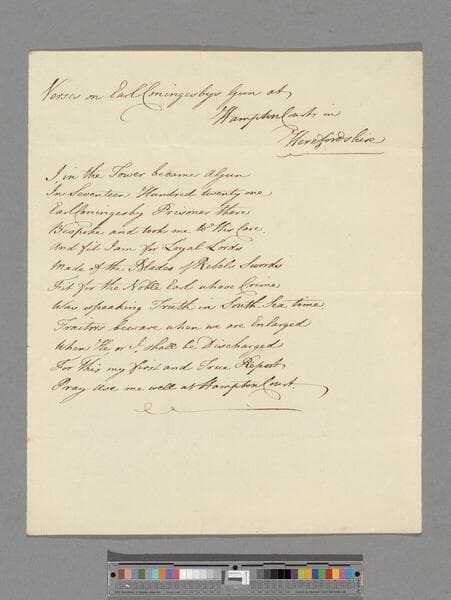 Verses on Earl Coningesbys Gun at
Hampton Court in
Herefordshire
I in the Tower became a Gun
In Seventeen Hundred twenty one
Earl Coningesby Prisoner there
Bespoke and took me to His Care
And fit I am for Loyal Lords
Made of the Blades of Rebels Swords
Fit for the Noble Earl whose Crime
Was speaking Truth in South Sea time
Traitors beware when we are Enlarged
When He or I shall be Discharged
For this my first and True Report
Pray Use me well at Hampton Court